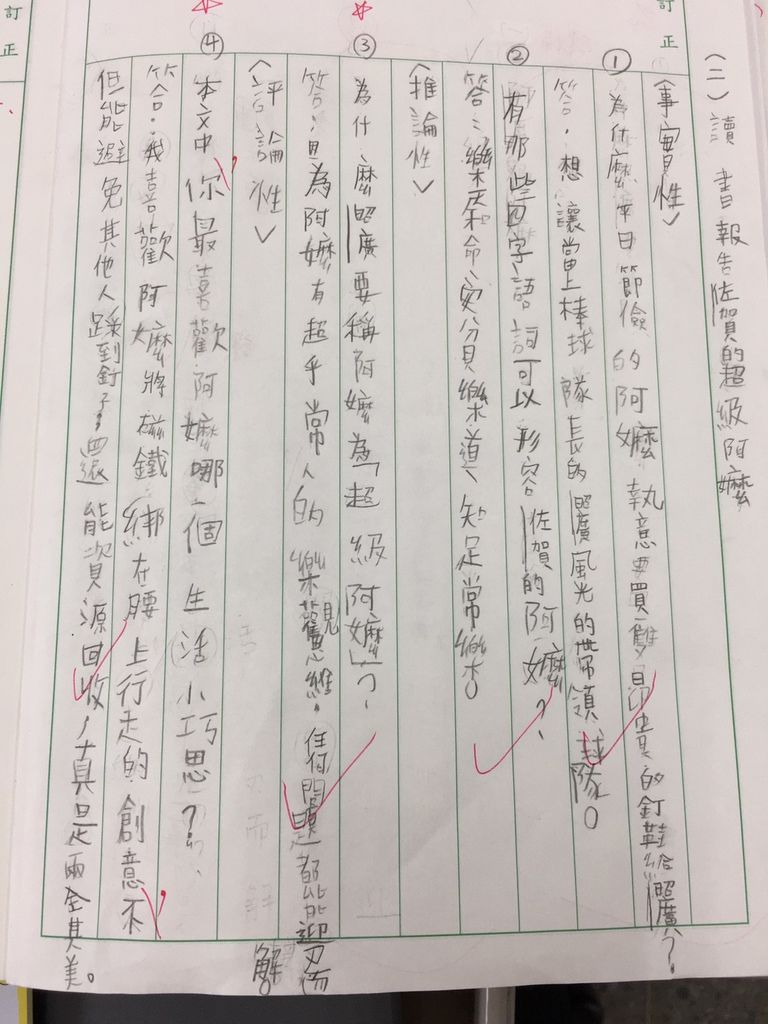 訂正
(二)讀書報告佐賀的超級阿嬤
〈事實性〉
①為什麼平日節儉的阿嬤,執意要買雙昂貴的釘鞋給昭廣?
答:想讓當上棒球隊長的昭廣風光的帶領球隊。
②有那些四字語詞可以形容佐賀的阿嬤?
答:樂天知命、安分貝樂道、知足常樂。
〈推論性〉
③為什麼昭廣要稱阿嬤為「超級阿嬤」?
答:因為阿嬤有超乎常人的樂觀思維,任何問題都能迎刃而解
〈評論性〉
④本文中,你最喜歡阿嬤哪一個生活小巧思?
答:我喜歡阿嬤將磁鐵綁在腰上行走的創意,不
但能避免其他人踩到釘子,還能資源回收,真是兩全其美。
訂正